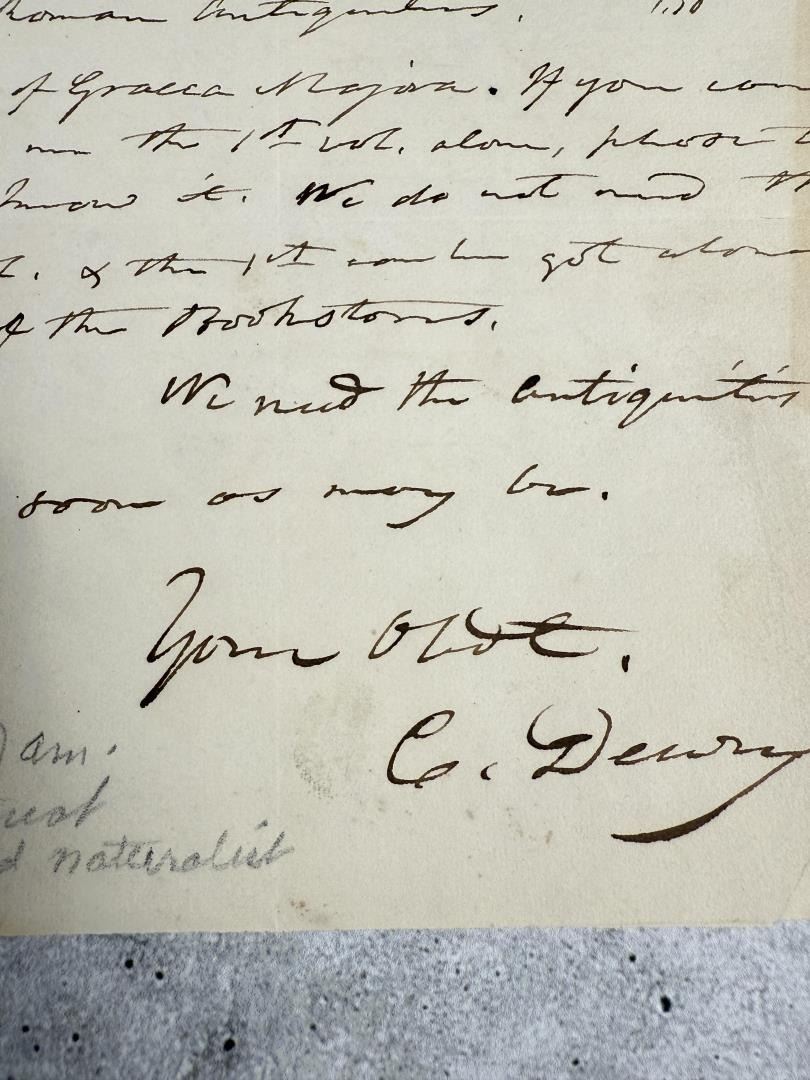 Roman Antiquities. 1.50
of Graeca Majora. If you can
me the 1st vol. alone, please
know it. We do not need th
& the 1st can be got alone
of the Bookstores.
We need the Antiquities
soon as may be.
Your Obdt.
C. Dewey
) am.
d naturalist